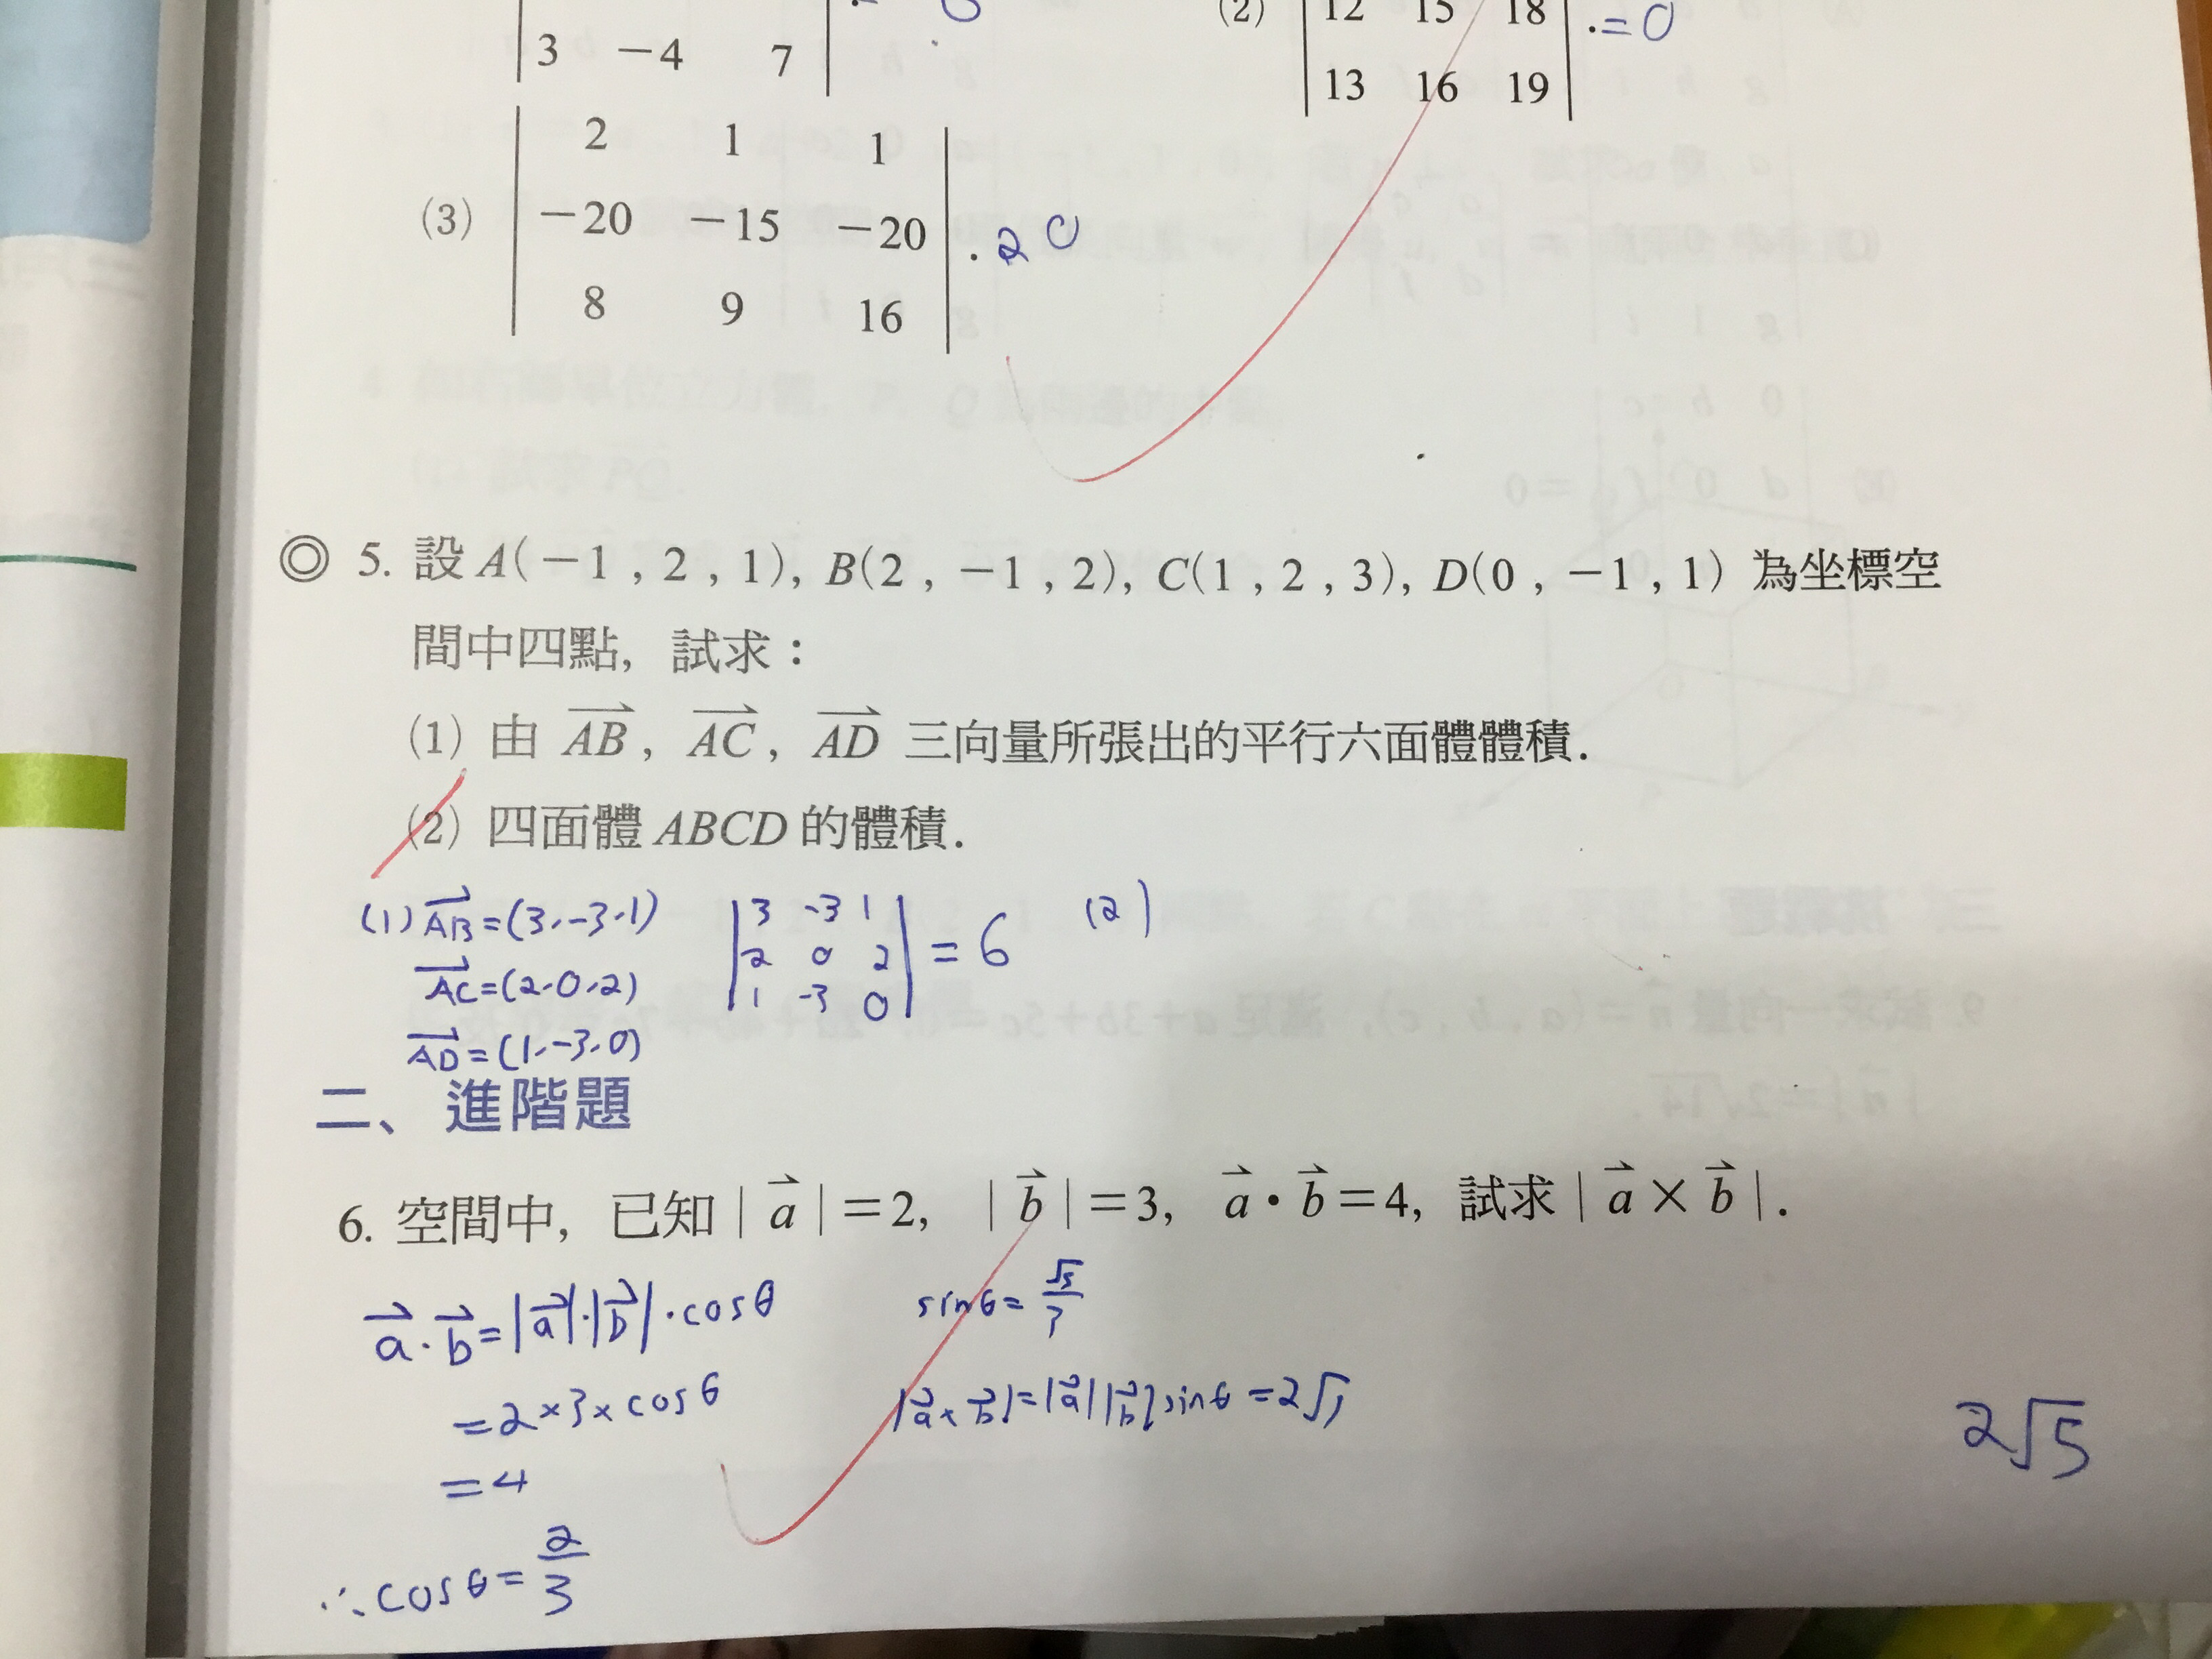 3 −4 7
(2) 12 15 18 .=0
13 16 19
2 1 1
(3) −20 −15 −20 . 20
8 9 16
◎ 5. 設 A(−1 , 2 , 1), B(2 , −1 , 2), C(1 , 2 , 3), D(0 , −1 , 1) 為坐標空
間中四點, 試求：
(1) 由 AB, AC, AD 三向量所張出的平行六面體體積.
(2) 四面體 ABCD 的體積.
(1) AB=(3,-3,1)
AC=(2,0,2)
AD=(1,-3,0)
|3 -3 1|
|2 0 2| = 6
|1 -3 0|
(2)
二、 進階題
6. 空間中, 已知 | a |=2, | b |=3, a・b=4, 試求 | a × b |.
a·b=|a|·|b|·cosθ
=2×3×cosθ
=4
∴cosθ=2/3
sinθ=√5/3
|a×b|=|a||b|sinθ=2√5
2√5